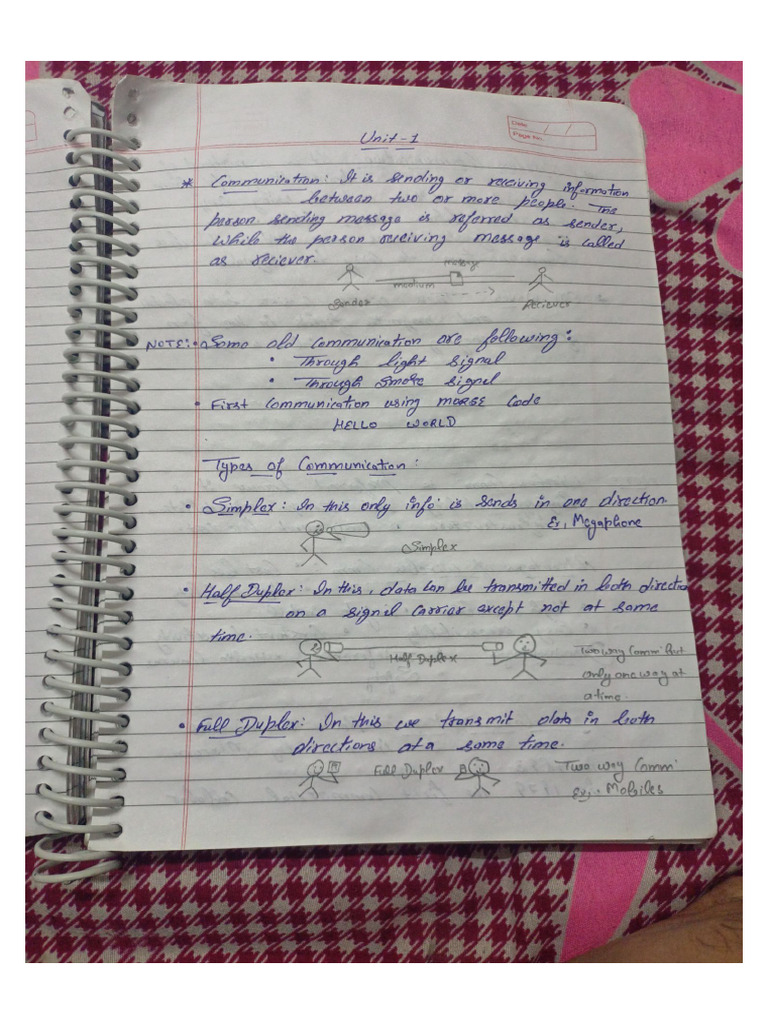 Date / /
Page No.
Unit-1
* Communication: It is sending or receiving information
between two or more people. The
person sending message is referred as sender,
while the person receiving message is called
as reciever.
message
medium
Sender
Reciever
NOTE: • Some old communication are following:
• Through light signal
• Through smoke signal
• First communication using MORSE Code
HELLO WORLD
Types of Communication:
• Simplex: In this only info is sends in one direction
Ex, Megaphone
Simplex
• Half Duplex: In this, data can be transmitted in both direction
on a signal carrier except not at same
time.
Half Duplex
Two way Comm. but
only one way at
a time.
• Full Duplex: In this we transmit data in both
directions at a same time.
Full Duplex
Two way Comm.
Ex, . Mobiles